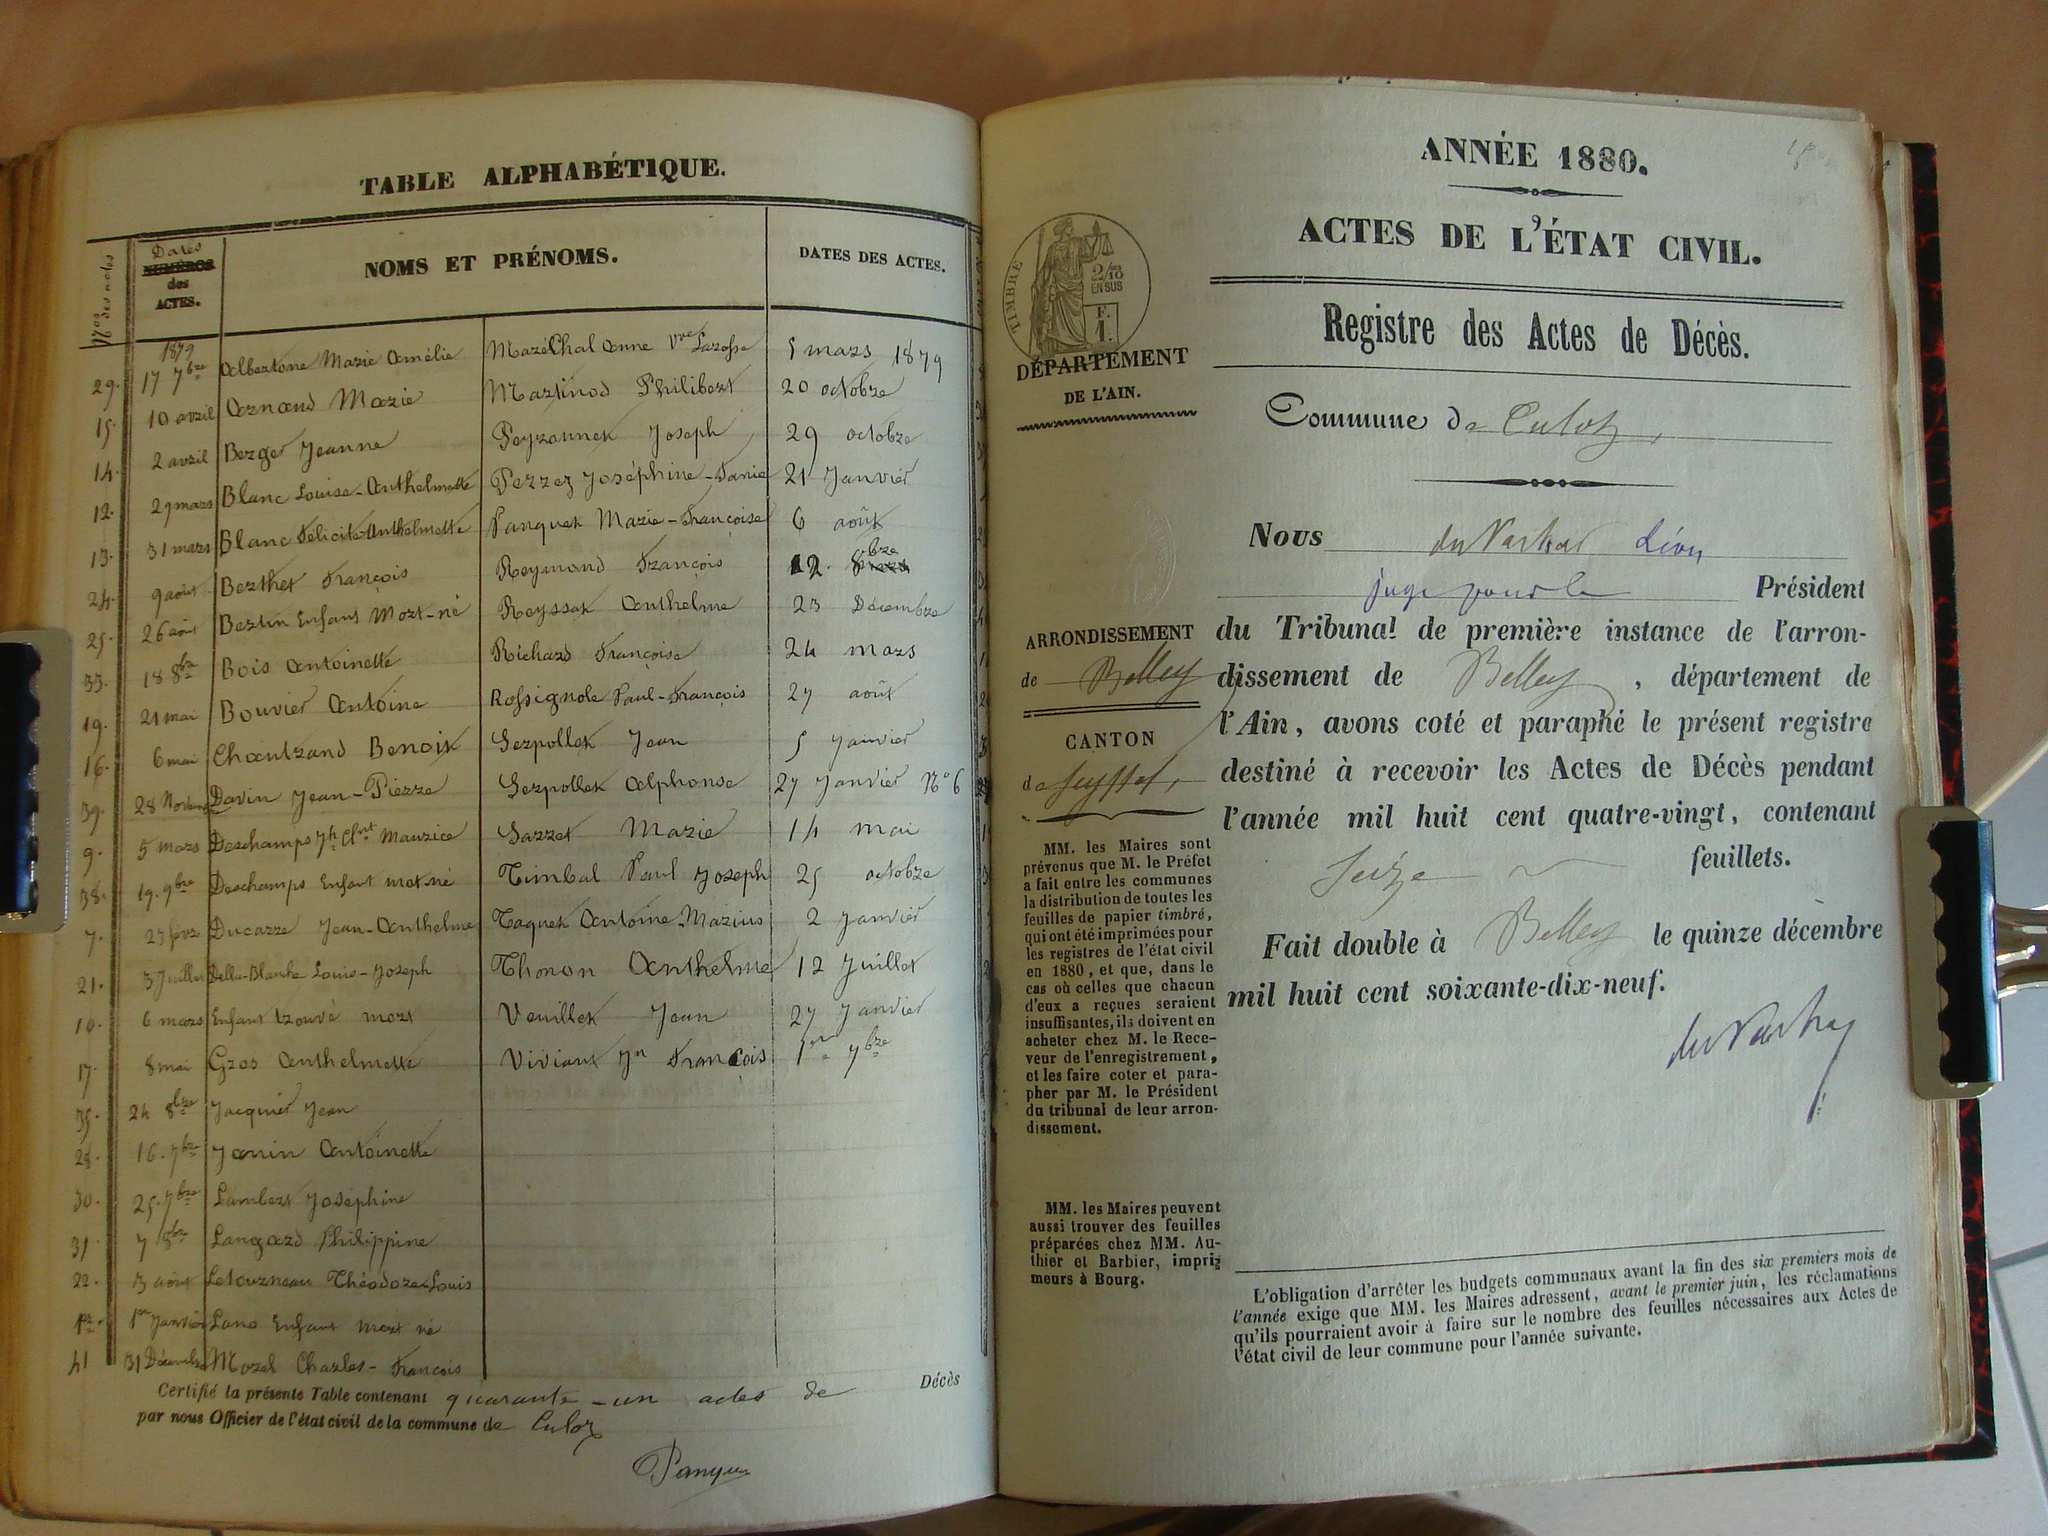 TABLE ALPHABÉTIQUE.
Nos des actes
Dates
NUMÉROS
des
ACTES.
NOMS ET PRÉNOMS.
DATES DES ACTES.
1879
29. 17 7bre Albertone Marie Amélie
15. 10 avril Arnaud Marie
14. 2 avril Berger Jeanne
12. 29 mars Blanc Louise-Anthelmette
13. 31 mars Blanc Félicité Anthelmette
24. 9 août Berthet François
25. 26 août Bertin Enfant Mort-né
33. 18 8bre Bois Antoinette
19. 21 mai Bouvier Antoine
16. 6 mai Chantrand Benoit
39. 28 Novembre Davin Jean-Pierre
9. 5 mars Deschamps Jh Clnt Maurice
38. 19. 9bre Deschamps Enfant mort né
7. 27 fevr Ducarre Jean-Anthelme
21. 3 Juillet Della-Blanche Louis-Joseph
10. 6 mars Enfant trouvé mort
17. 8 mai Gros Anthelmette
35. 24 8bre Jacquier Jean
28. 16. 7bre Janin Antoinette
30. 25. 7bre Lambert Joséphine
31. 7 8bre Langard Philippine
22. 3 août Letourneau Théodore Louis
1er 1er Janvier Lano Enfant mort né
41 31 Décembre Morel Charles-François
Maréchal Anne Vve Larosse 5 mars 1879
Martinod Philibert 20 octobre
Peyronnet Joseph 29 octobre
Perrez Joséphine-Fanie 21 Janvier
Panquet Marie-Françoise 6 août
Reymond François 12. 8bre
Reyssat Anthelme 23 Décembre
Richard Françoise 24 mars
Rossignole Paul-François 27 août
Serpollet Jean 5 Janvier
Serpollet Alphonse 27 Janvier No 6
Sarret Marie 14 mai
Timbal Paul Joseph 25 octobre
Taquet Antoine-Marius 2 Janvier
Thonon Anthelme 12 Juillet
Veuillet Jean 27 Janvier
Viviant Jn François 1er 7bre
Certifié la présente Table contenant quarante-un actes de Décès
par nous Officier de l'état civil de la commune de Culoz
Panquet
ANNÉE 1880.
ACTES DE L'ÉTAT CIVIL.
Registre des Actes de Décès.
TIMBRE
2/10
EN SUS
F.
1.
DÉPARTEMENT
DE L'AIN.
Commune de Culoz,
Nous du Vachat Léon
juge pour le Président
du Tribunal de première instance de l'arron-
dissement de Belley, département de
l'Ain, avons coté et paraphé le présent registre
destiné à recevoir les Actes de Décès pendant
l'année mil huit cent quatre-vingt, contenant
Seize feuillets.
Fait double à Belley le quinze décembre
mil huit cent soixante-dix-neuf.
du Vachat
ARRONDISSEMENT
de Belley
CANTON
de Seyssel,
MM. les Maires sont
prévenus que M. le Préfet
a fait entre les communes
la distribution de toutes les
feuilles de papier timbré,
qui ont été imprimées pour
les registres de l'état civil
en 1880, et que, dans le
cas où celles que chacun
d'eux a reçues seraient
insuffisantes, ils doivent en
acheter chez M. le Rece-
veur de l'enregistrement,
et les faire coter et para-
pher par M. le Président
du tribunal de leur arron-
dissement.
MM. les Maires peuvent
aussi trouver des feuilles
préparées chez MM. Au-
thier et Barbier, impri-
meurs à Bourg.
L'obligation d'arrêter les budgets communaux avant la fin des six premiers mois de
l'année exige que MM. les Maires adressent, avant le premier juin, les réclamations
qu'ils pourraient avoir à faire sur le nombre des feuilles nécessaires aux Actes de
l'état civil de leur commune pour l'année suivante.